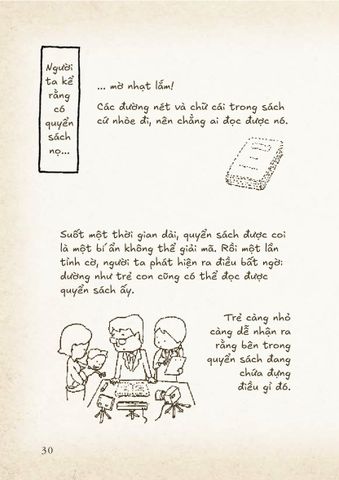 Người
ta kể
rằng
có
quyển
sách
nọ...
... mờ nhạt lắm!
Các đường nét và chữ cái trong sách
cứ nhòe đi, nên chẳng ai đọc được nó.
Suốt một thời gian dài, quyển sách được coi
là một bí ẩn không thể giải mã. Rồi một lần
tình cờ, người ta phát hiện ra điều bất ngờ:
dường như trẻ con cũng có thể đọc được
quyển sách ấy.
Trẻ càng nhỏ
càng dễ nhận ra
rằng bên trong
quyển sách đang
chứa đựng
điều gì đó.
30